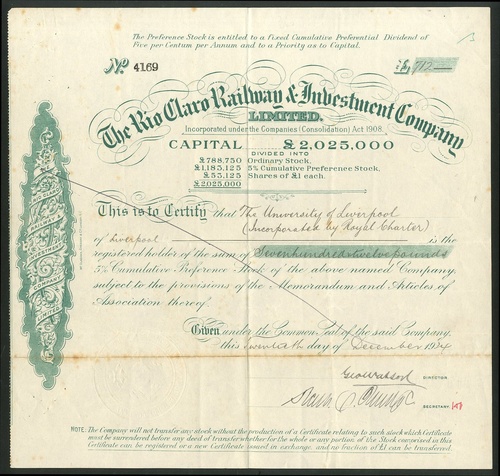 The Preference Stock is entitled to a Fixed Cumulative Preferential Dividend of
Five per Centum per Annum and to a Priority as to Capital.
No. 4169
£712
The Rio Claro Railway & Investment Company
LIMITED.
Incorporated under the Companies (Consolidation) Act 1908.
CAPITAL £2,025,000
DIVIDED INTO
£788,750 Ordinary Stock.
£1,183,125 5% Cumulative Preference Stock,
£53,125 Shares of £1 each.
£2,025,000
This is to Certify that The University of Liverpool
(Incorporated by Royal Charter)
of Liverpool is the
registered holder of the sum of Sevenhundred & twelve pounds
5% Cumulative Preference Stock of the above named Company,
subject to the provisions of the Memorandum and Articles of
Association thereof.
Given under the Common Seal of the said Company,
this Twentieth day of December 1934
Geo Watson
DIRECTOR.
SECRETARY.
NOTE: The Company will not transfer any stock without the production of a Certificate relating to such stock which Certificate
must be surrendered before any deed of transfer whether for the whole or any portion of the Stock comprised in this
Certificate can be registered or a new Certificate issued in exchange, and no fraction of £1 can be transferred.
THE RIO CLARO RAILWAY & INVESTMENT COMPANY LIMITED